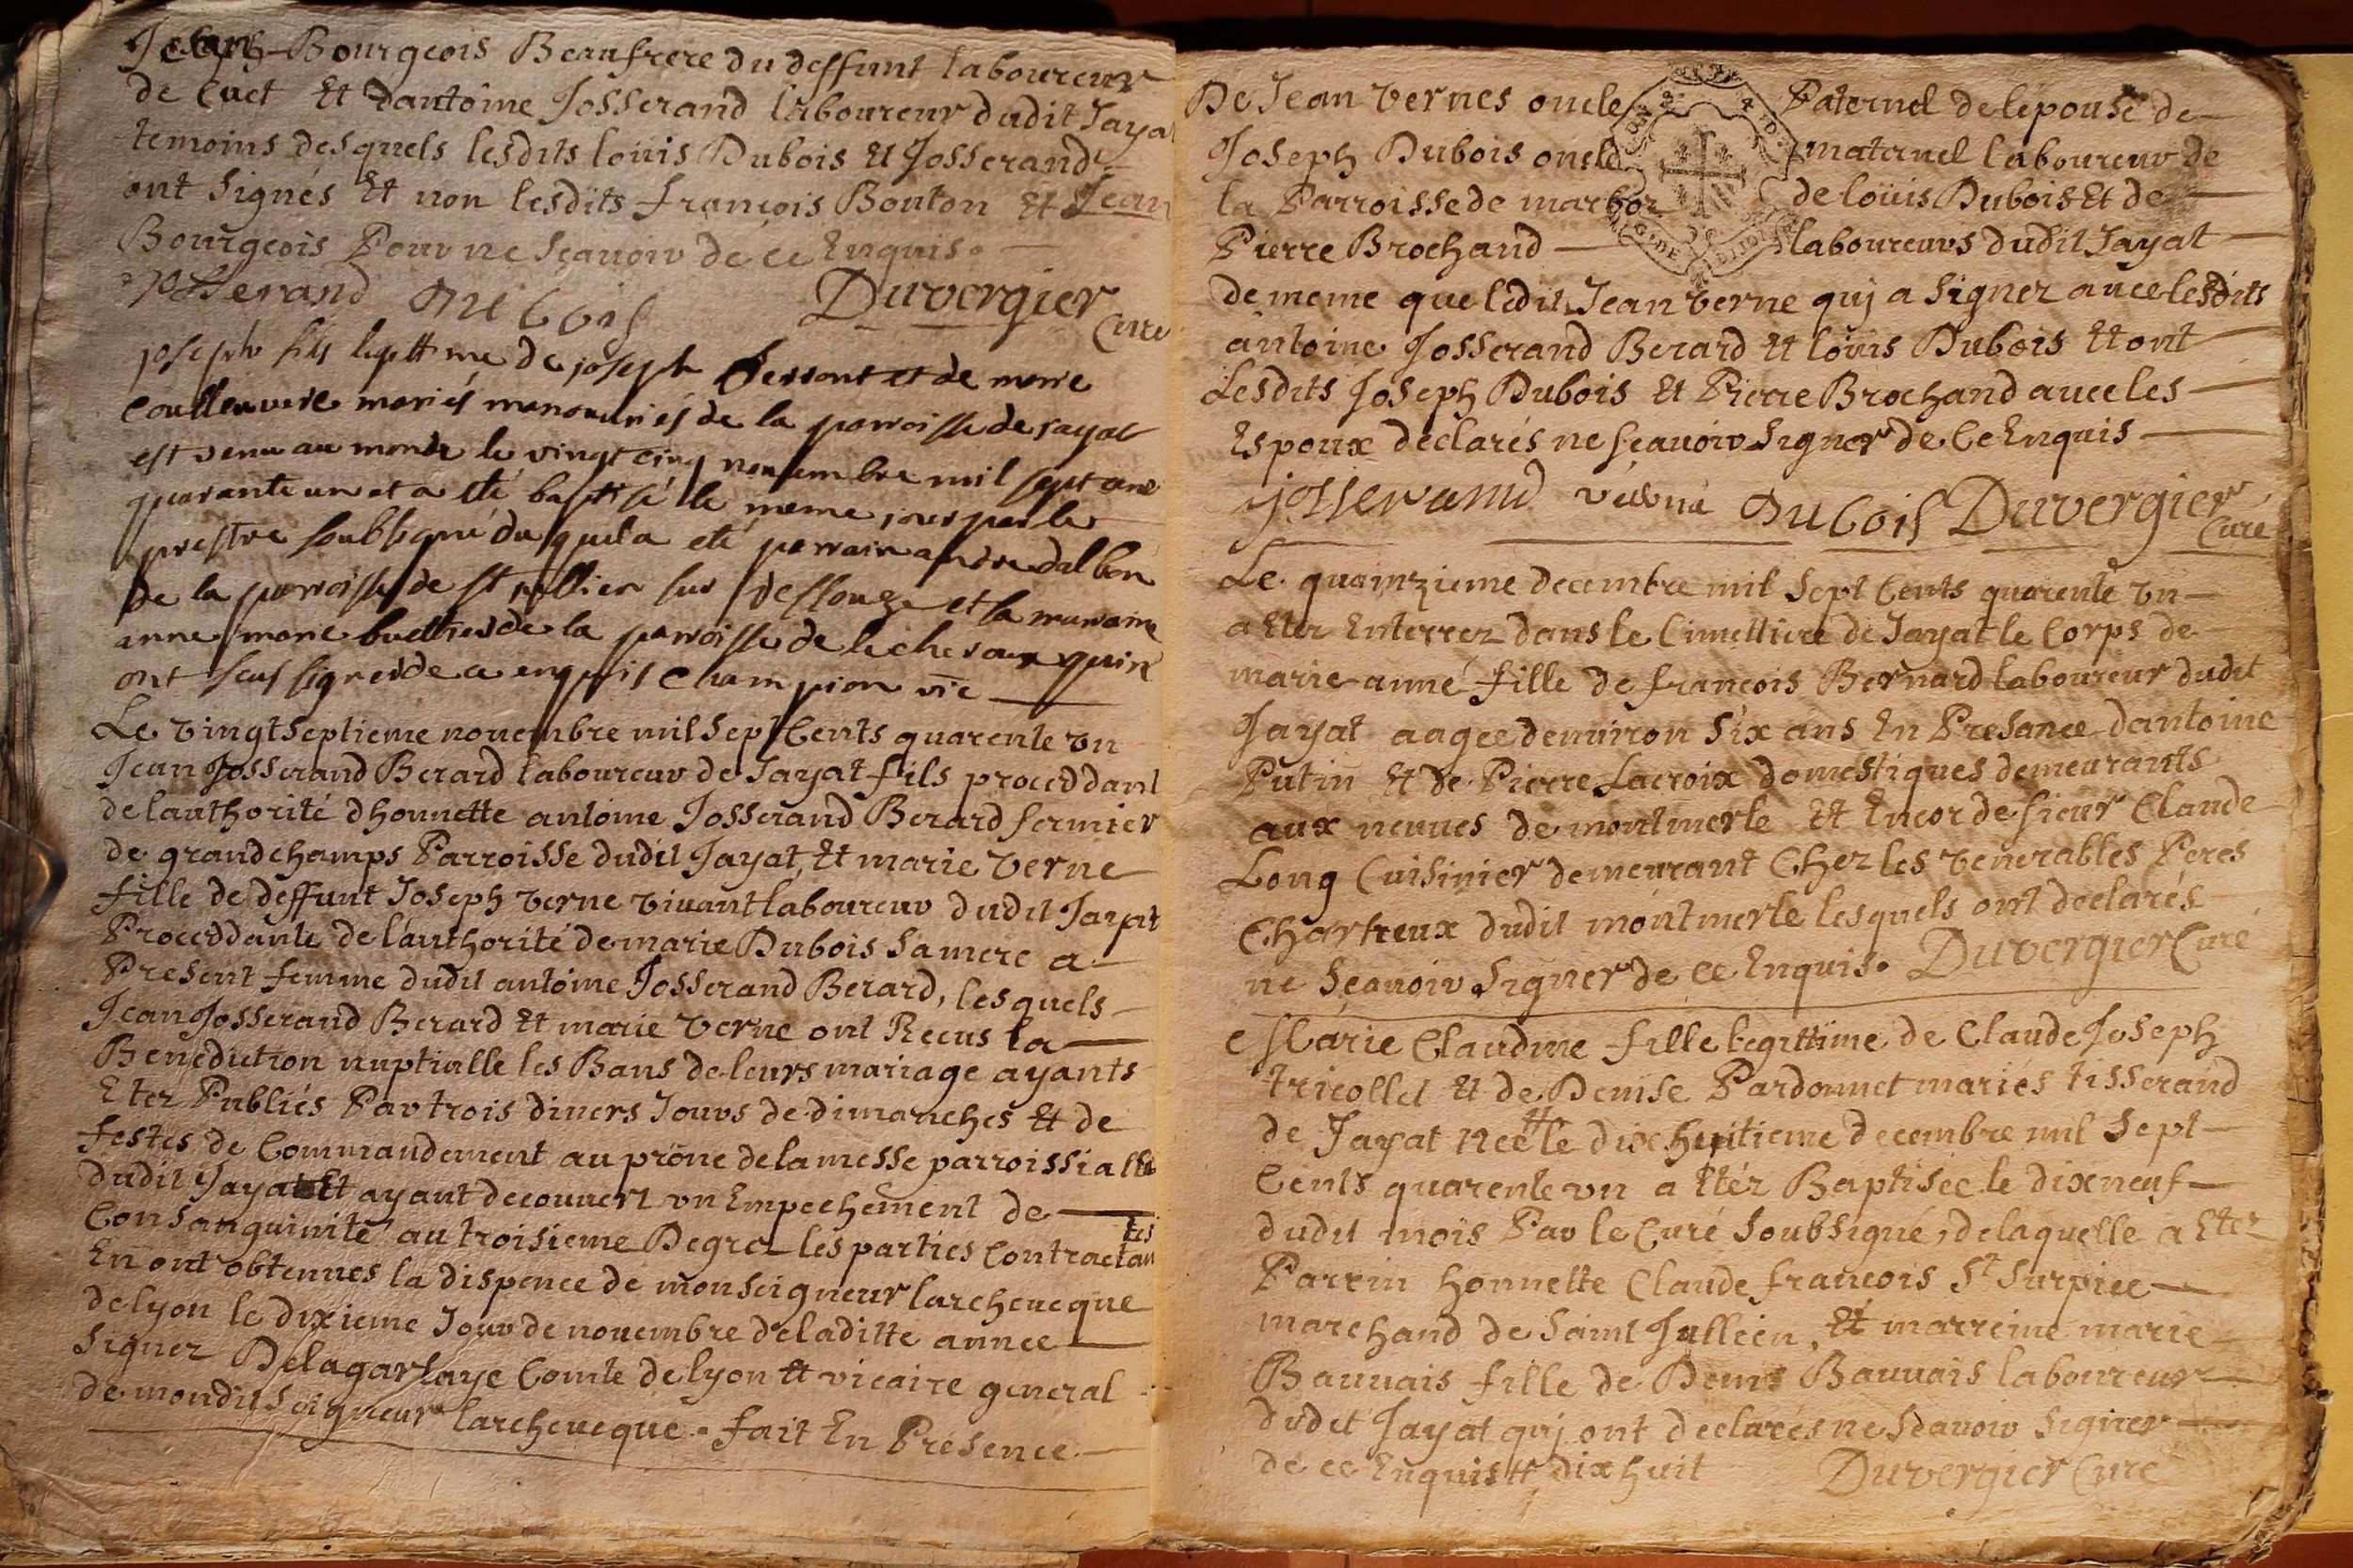 Jean Bourgeois Beaufrere du deffunt laboureur
de Cuet Et dantoine Josserand laboureur dudit Jayat
temoins desquels lesdits loüis Dubois Et Josserand
ont Signés Et non lesdits francois Bouton Et Jean
Bourgeois Pour ne Scavoir de ce Enquis.
Josserand Dubois Duvergier Curé
joseph fils legittime de joseph et de marie
Couilleuvre mariés manouvriés de la parroisse de jayat
est venu au monde le vingt cinq novembre mil sept cens
quarante un et a eté baptisé le meme jour par le
prestre soubsigné duquel a eté parrain andre dalban
de la parroisse de st jullien sur et la marraine
anne marie de la parroisse de lecheroux qui n
ont sceu signer de ce enquis Champion vic
Le vingtseptieme novembre mil Sept Cents quarente vn
Jean Josserand Berard laboureur de Jayat fils proceddant
de lauthorité dhonnette antoine Josserand Berard fermier
de grandchamps Parroisse dudit Jayat, Et marie verne
fille de deffunt Joseph verne vivant laboureur dudit Jayat
Proceddante de lauthorité de marie Dubois Sa mere a
Present femme dudit antoine Josserand Berard, lesquels
Jean Josserand Berard Et marie verne ont Recus la
Benediction nuptialle les Bans de leurs mariage ayants
Eter Publiés Par trois divers Jours de dimanches Et de
festes de Commandement au prône de la messe parroissialle
dudit Jayat Et ayant decouvert vn Empechement de
Consanguinité au troisieme Degrez les parties Contractantes
En ont obtennes la dispence de monseigneur larcheveque
de lyon le dixieme Jour de novembre de laditte annee
Signez Delagarlaye Comte de lyon Et vicaire general
de mondit Seigneur larcheveque. fait En Presence
De Jean vernes oncle Paternel de lepouse de
Joseph Dubois oncle maternel laboureur de
la Parroisse de marboz de loüis Dubois Et de
Pierre Brochand laboureurs dudit Jayat
de meme que ledit Jean verne quj a Signez avec lesdits
antoine Josserand Berard Et loüis Dubois Et ont
Lesdits Joseph Dubois Et Pierre Brochand avec les
Espoux declarés ne scavoir Signer de Ce Enquis
josserand verne Dubois Duvergier Curé
Le quainzieme decembre mil Sept Cents quarente vn
a Eter Enterrez dans le Cimettiere de Jayat le Corps de
marie anne fille de francois Bernard laboureur dudit
Jayat aagee denviron Six ans En Presance dantoine
Putin Et de Pierre Lacroix domestiques demeurants
aux neuves de montmerle Et Encor de sieur Claude
Long Cuisinier demeurant Chez les venerables Peres
Chartreux dudit montmerle lesquels ont declarés
ne Scavoir Signer de ce Enquis. Duvergier Curé
Marie Claudine fille legittime de Claude Joseph
tricollet Et de Denise Pardonnet mariés tisserand
de Jayat Née # le dix huitieme decembre mil Sept
Cents quarente vn a Etér Baptisée le dixneuf
dudit mois Par le Curé Soubsigné, de laquelle a Eter
Parrin honnette Claude francois St Surpice
marchand de Saint Jullien, Et marreine marie
Bauvais fille de Denis Bauvais laboureur
dudit Jayat quj ont declarés ne Scavoir Signer
de ce Enquis # dix huit Duvergier Curé